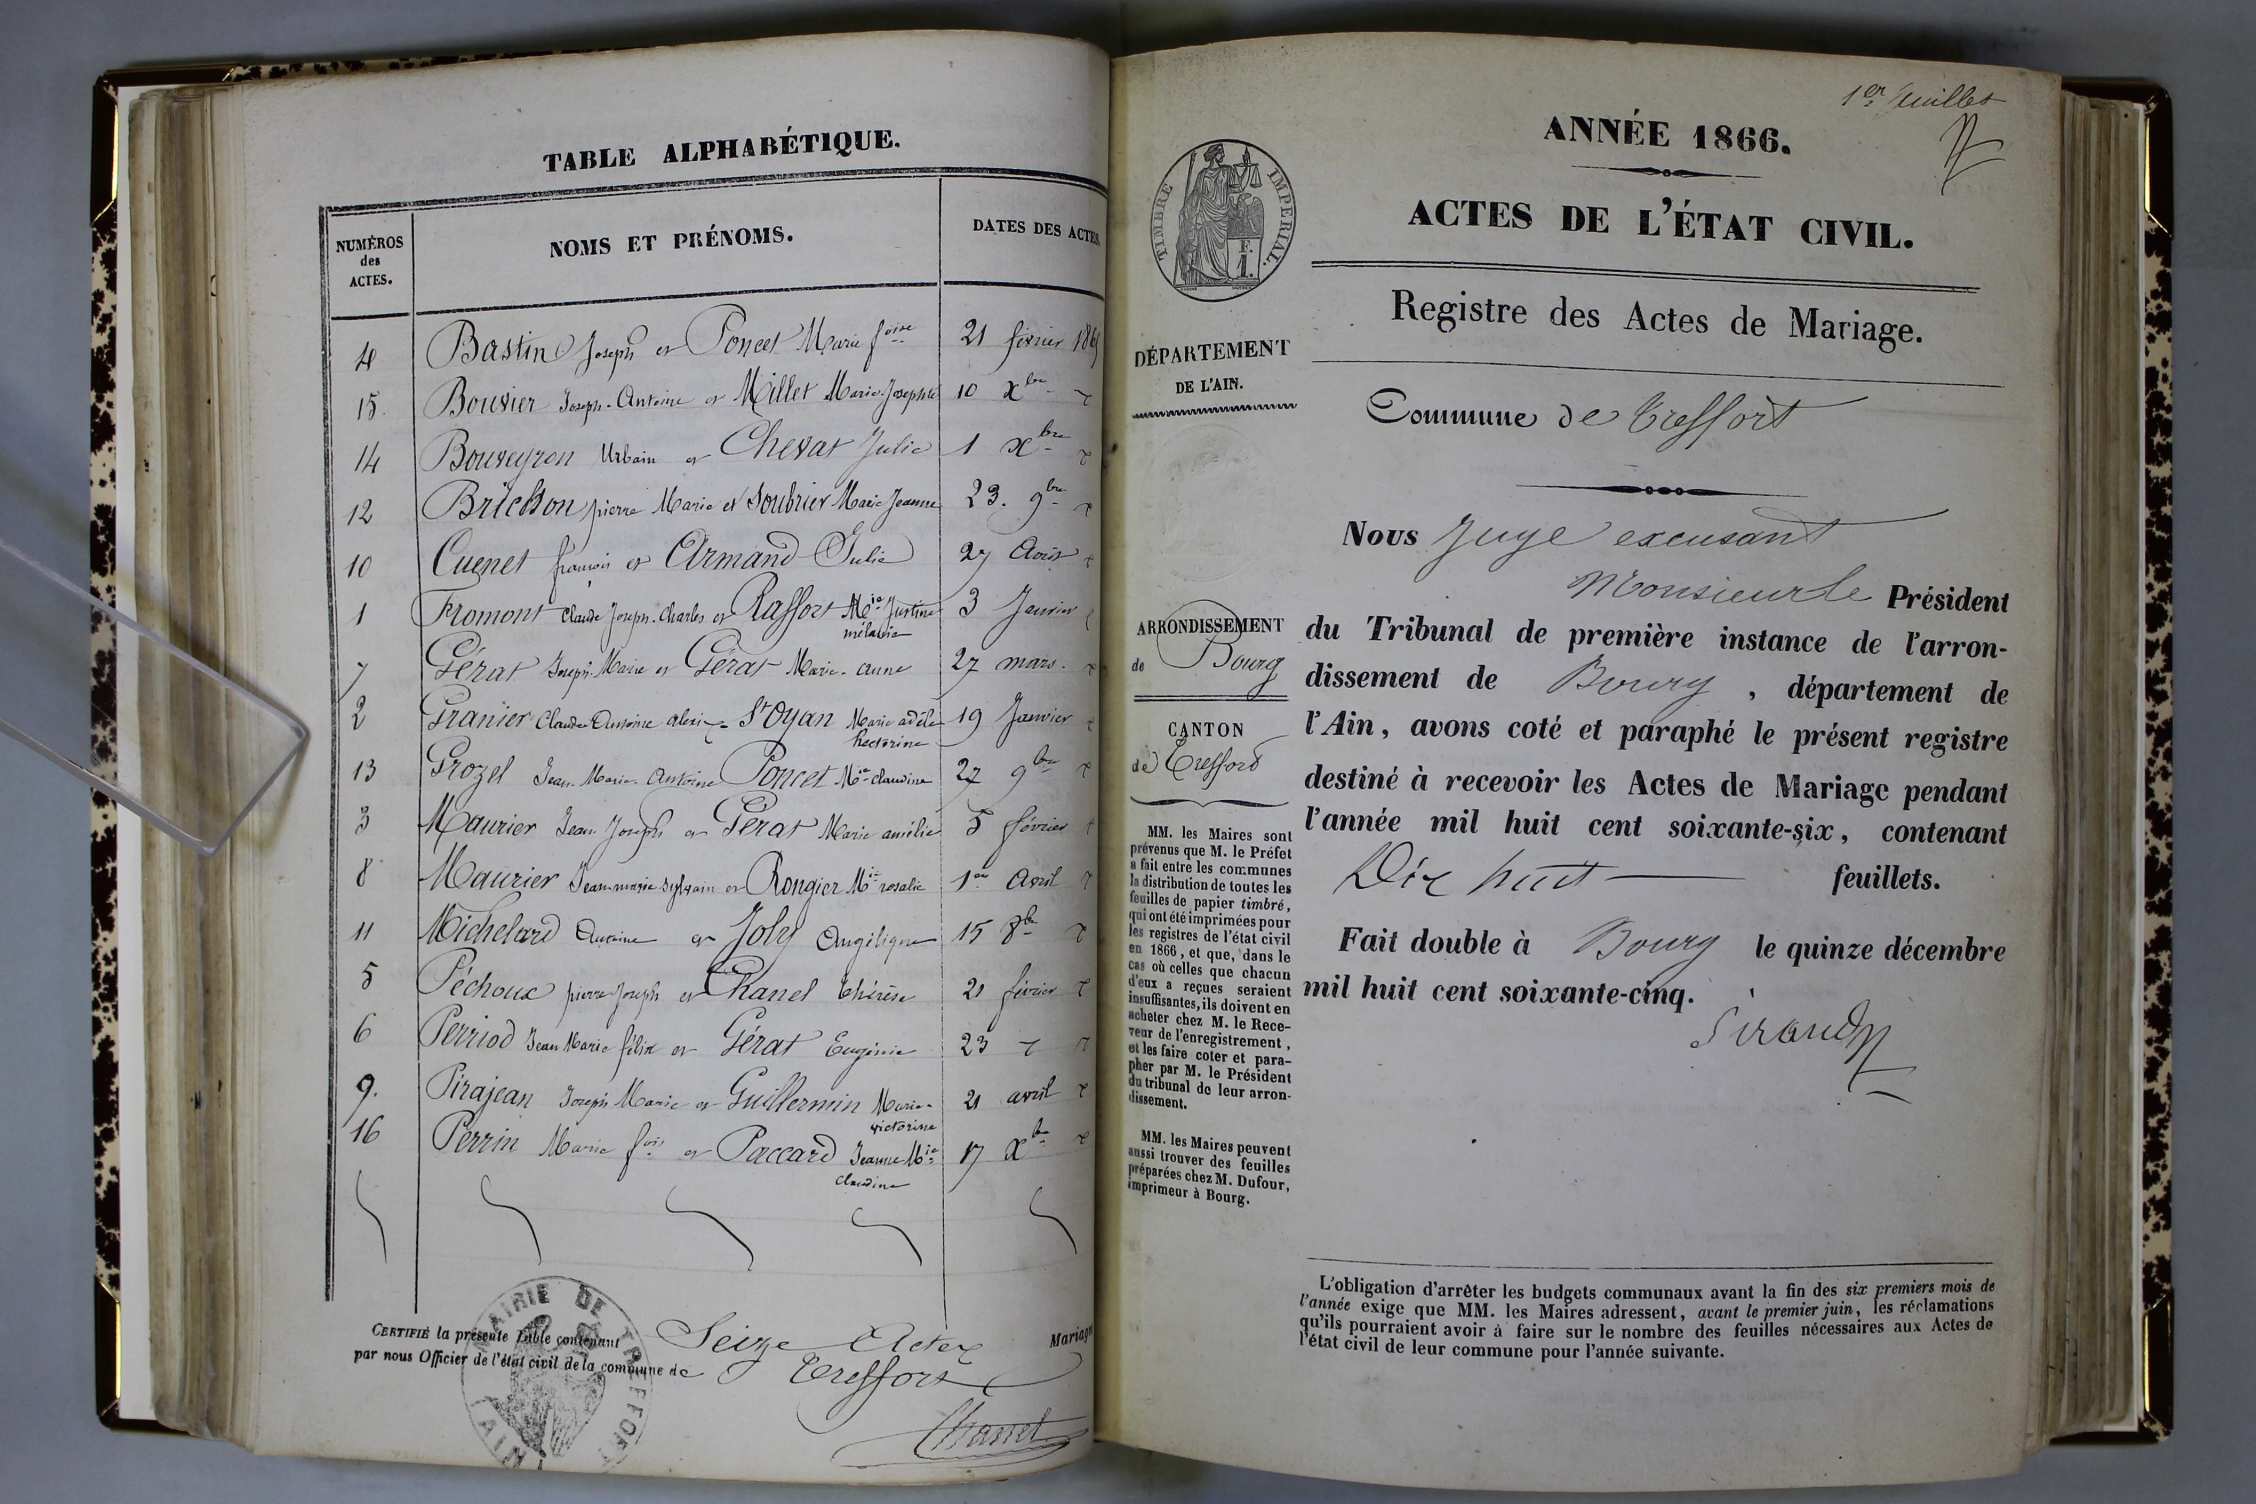 TABLE ALPHABÉTIQUE.
NUMÉROS
des
ACTES.
NOMS ET PRÉNOMS.
DATES DES ACTES
4 Bastin Joseph et Poncet Marie foise 21 février 1865
15. Bouvier Joseph-Antoine et Millet Marie-Josephte 10 xbre
14 Bouveyron Urbain et Chevat Julie 1 xbre
12 Brichon pierre Marie et Soubrier Marie Jeanne 23. 9bre
10 Cuenet françois et Armand Julie 27 Août
1 Fromont Claude Joseph-Charles et Raffort Mie Justine 3 Janvier
mélanie
7 Gérat Joseph-Marie et Gérat Marie-anne 27 mars
2 Granier Claude Antoine alexis St Oyan Marie adèle 19 Janvier
hectorine
13 Grozel Jean-Marie-Antoine Poncet Mie claudine 27 9bre
3 Maurier Jean Joseph et Gérat Marie amélie 5 février
8 Maurier Jean-marie sylvain et Rongier Mie rosalie 1er Avril
11 Michelard Antoine et Joly Angélique 15 8bre
5 Péchoux pierre Joseph et Chanel thérèse 21 février
6 Perriod Jean Marie félix et Gérat Eugénie 23
9. Pirajean Joseph Marie et Guillermin Marie- 21 avril
victorine
16 Perrin Marie fois et Paccard Jeanne Mie 17 Xbre
claudine
CERTIFIÉ la présente Table contenant Seize Actes Mariage
par nous Officier de l'état civil de la commune de Treffort
MAIRIE DE TREFFORT
(AIN)
Chanel
1er feuillet
ANNÉE 1866.
TIMBRE IMPERIAL.
F.
1.
ACTES DE L'ÉTAT CIVIL.
Registre des Actes de Mariage.
DÉPARTEMENT
DE L'AIN.
Commune de Treffort
Nous Juge excusant
Monsieur le Président
du Tribunal de première instance de l'arron-
dissement de Bourg, département de
l'Ain, avons coté et paraphé le présent registre
destiné à recevoir les Actes de Mariage pendant
l'année mil huit cent soixante-six, contenant
Dix huit feuillets.
Fait double à Bourg le quinze décembre
mil huit cent soixante-cinq.
Sirand
ARRONDISSEMENT
de Bourg
CANTON
de Treffort
MM. les Maires sont
prévenus que M. le Préfet
a fait entre les communes
la distribution de toutes les
feuilles de papier timbré,
qui ont été imprimées pour
les registres de l'état civil
en 1866, et que, dans le
cas où celles que chacun
d'eux a reçues seraient
insuffisantes, ils doivent en
acheter chez M. le Rece-
veur de l'enregistrement,
et les faire coter et para-
pher par M. le Président
du tribunal de leur arron-
dissement.
MM. les Maires peuvent
aussi trouver des feuilles
préparées chez M. Dufour,
imprimeur à Bourg.
L'obligation d'arrêter les budgets communaux avant la fin des six premiers mois de
l'année exige que MM. les Maires adressent, avant le premier juin, les réclamations
qu'ils pourraient avoir à faire sur le nombre des feuilles nécessaires aux Actes de
l'état civil de leur commune pour l'année suivante.